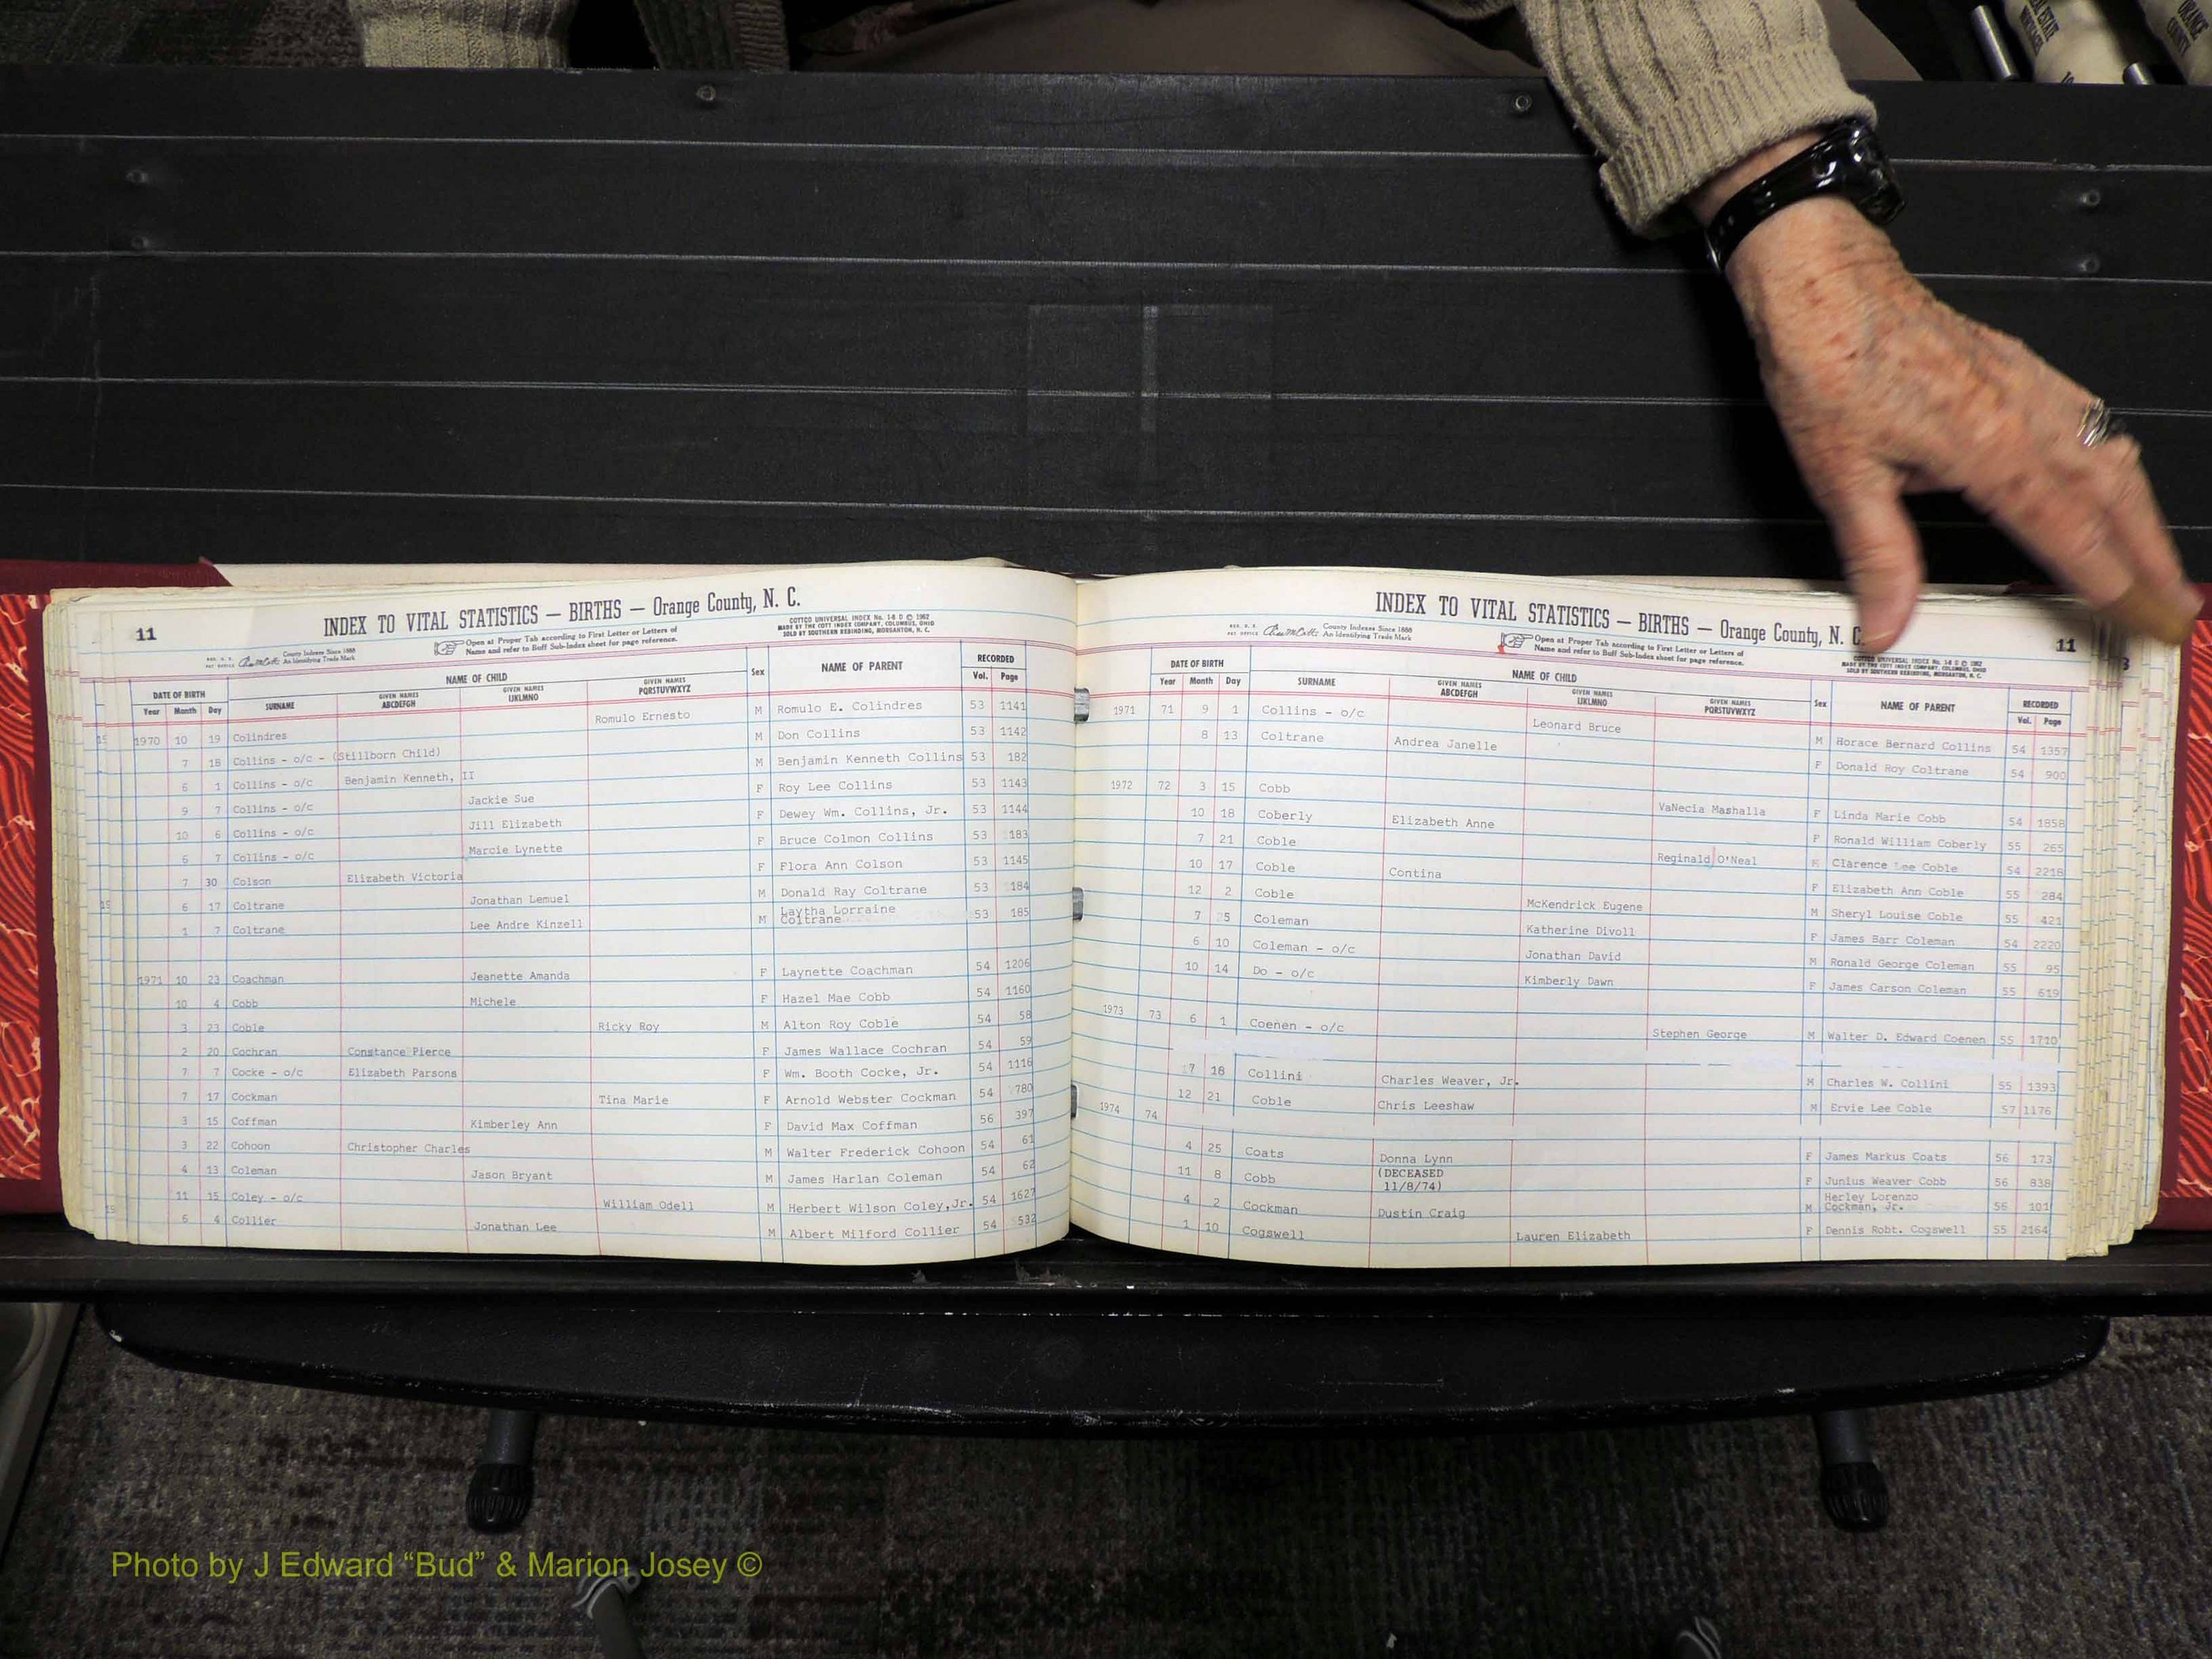 REAL ESTATE
ORANGE COUNTY
11
INDEX TO VITAL STATISTICS — BIRTHS — Orange County, N. C.
County Indexes Since 1888
An Identifying Trade Mark
Open at Proper Tab according to First Letter or Letters of
Name and refer to Buff Sub-Index sheet for page reference.
COTTCO UNIVERSAL INDEX No. 14 D © 1962
MADE BY THE COTT INDEX COMPANY, COLUMBUS, OHIO
SOLD BY SOUTHERN REBINDING, MORGANTON, N. C.
DATE OF BIRTH NAME OF CHILD Sex NAME OF PARENT RECORDED
Year Month Day SURNAME GIVEN NAMES ABCDEFGH GIVEN NAMES IJKLMNO GIVEN NAMES PQRSTUVWXYZ Vol. Page
1970 10 19 Colindres Romulo Ernesto M Romulo E. Colindres 53 1141
7 18 Collins - o/c - (Stillborn Child) M Don Collins 53 1142
6 1 Collins - o/c Benjamin Kenneth, II M Benjamin Kenneth Collins 53 182
9 7 Collins - o/c Jackie Sue F Roy Lee Collins 53 1143
10 6 Collins - o/c Jill Elizabeth F Dewey Wm. Collins, Jr. 53 1144
6 7 Collins - o/c Marcie Lynette F Bruce Colmon Collins 53 183
7 30 Colson Elizabeth Victoria F Flora Ann Colson 53 1145
6 17 Coltrane Jonathan Lemuel M Donald Ray Coltrane 53 184
1 7 Coltrane Lee Andre Kinzell M Laytha Lorraine Coltrane 53 185
1971 10 23 Coachman Jeanette Amanda F Laynette Coachman 54 1206
10 4 Cobb Michele F Hazel Mae Cobb 54 1160
3 23 Coble Ricky Roy M Alton Roy Coble 54 58
2 20 Cochran Constance Pierce F James Wallace Cochran 54 59
7 7 Cocke - o/c Elizabeth Parsons F Wm. Booth Cocke, Jr. 54 1116
7 17 Cockman Tina Marie F Arnold Webster Cockman 54 780
3 15 Coffman Kimberley Ann F David Max Coffman 56 397
3 22 Cohoon Christopher Charles M Walter Frederick Cohoon 54 61
4 13 Coleman Jason Bryant M James Harlan Coleman 54 62
11 15 Coley - o/c William Odell M Herbert Wilson Coley,Jr. 54 1627
6 4 Collier Jonathan Lee M Albert Milford Collier 54 532
INDEX TO VITAL STATISTICS — BIRTHS — Orange County, N. C.
11
County Indexes Since 1888
An Identifying Trade Mark
Open at Proper Tab according to First Letter or Letters of
Name and refer to Buff Sub-Index sheet for page reference.
COTTCO UNIVERSAL INDEX No. 14 D © 1962
MADE BY THE COTT INDEX COMPANY, COLUMBUS, OHIO
SOLD BY SOUTHERN REBINDING, MORGANTON, N. C.
DATE OF BIRTH NAME OF CHILD Sex NAME OF PARENT RECORDED
Year Month Day SURNAME GIVEN NAMES ABCDEFGH GIVEN NAMES IJKLMNO GIVEN NAMES PQRSTUVWXYZ Vol. Page
1971 71 9 1 Collins - o/c Leonard Bruce M Horace Bernard Collins 54 1357
8 13 Coltrane Andrea Janelle F Donald Roy Coltrane 54 900
1972 72 3 15 Cobb VaNecia Mashalla F Linda Marie Cobb 54 1858
10 18 Coberly Elizabeth Anne F Ronald William Coberly 55 265
7 21 Coble Reginald O'Neal M Clarence Lee Coble 54 2218
10 17 Coble Contina F Elizabeth Ann Coble 55 284
12 2 Coble McKendrick Eugene M Sheryl Louise Coble 55 421
7 5 Coleman Katherine Divoll F James Barr Coleman 54 2220
6 10 Coleman - o/c Jonathan David M Ronald George Coleman 55 95
10 14 Do - o/c Kimberly Dawn F James Carson Coleman 55 619
1973 73 6 1 Coenen - o/c Stephen George M Walter D. Edward Coenen 55 1710
7 18 Collini Charles Weaver, Jr. M Charles W. Collini 55 1393
12 21 Coble Chris Leeshaw M Ervie Lee Coble 57 1176
1974 74
4 25 Coats Donna Lynn F James Markus Coats 56 173
11 8 Cobb (DECEASED 11/8/74) F Junius Weaver Cobb 56 838
4 2 Cockman Dustin Craig M Herley Lorenzo Cockman, Jr. 56 101
1 10 Cogswell Lauren Elizabeth F Dennis Robt. Cogswell 55 2164
Photo by J Edward “Bud” & Marion Josey ©